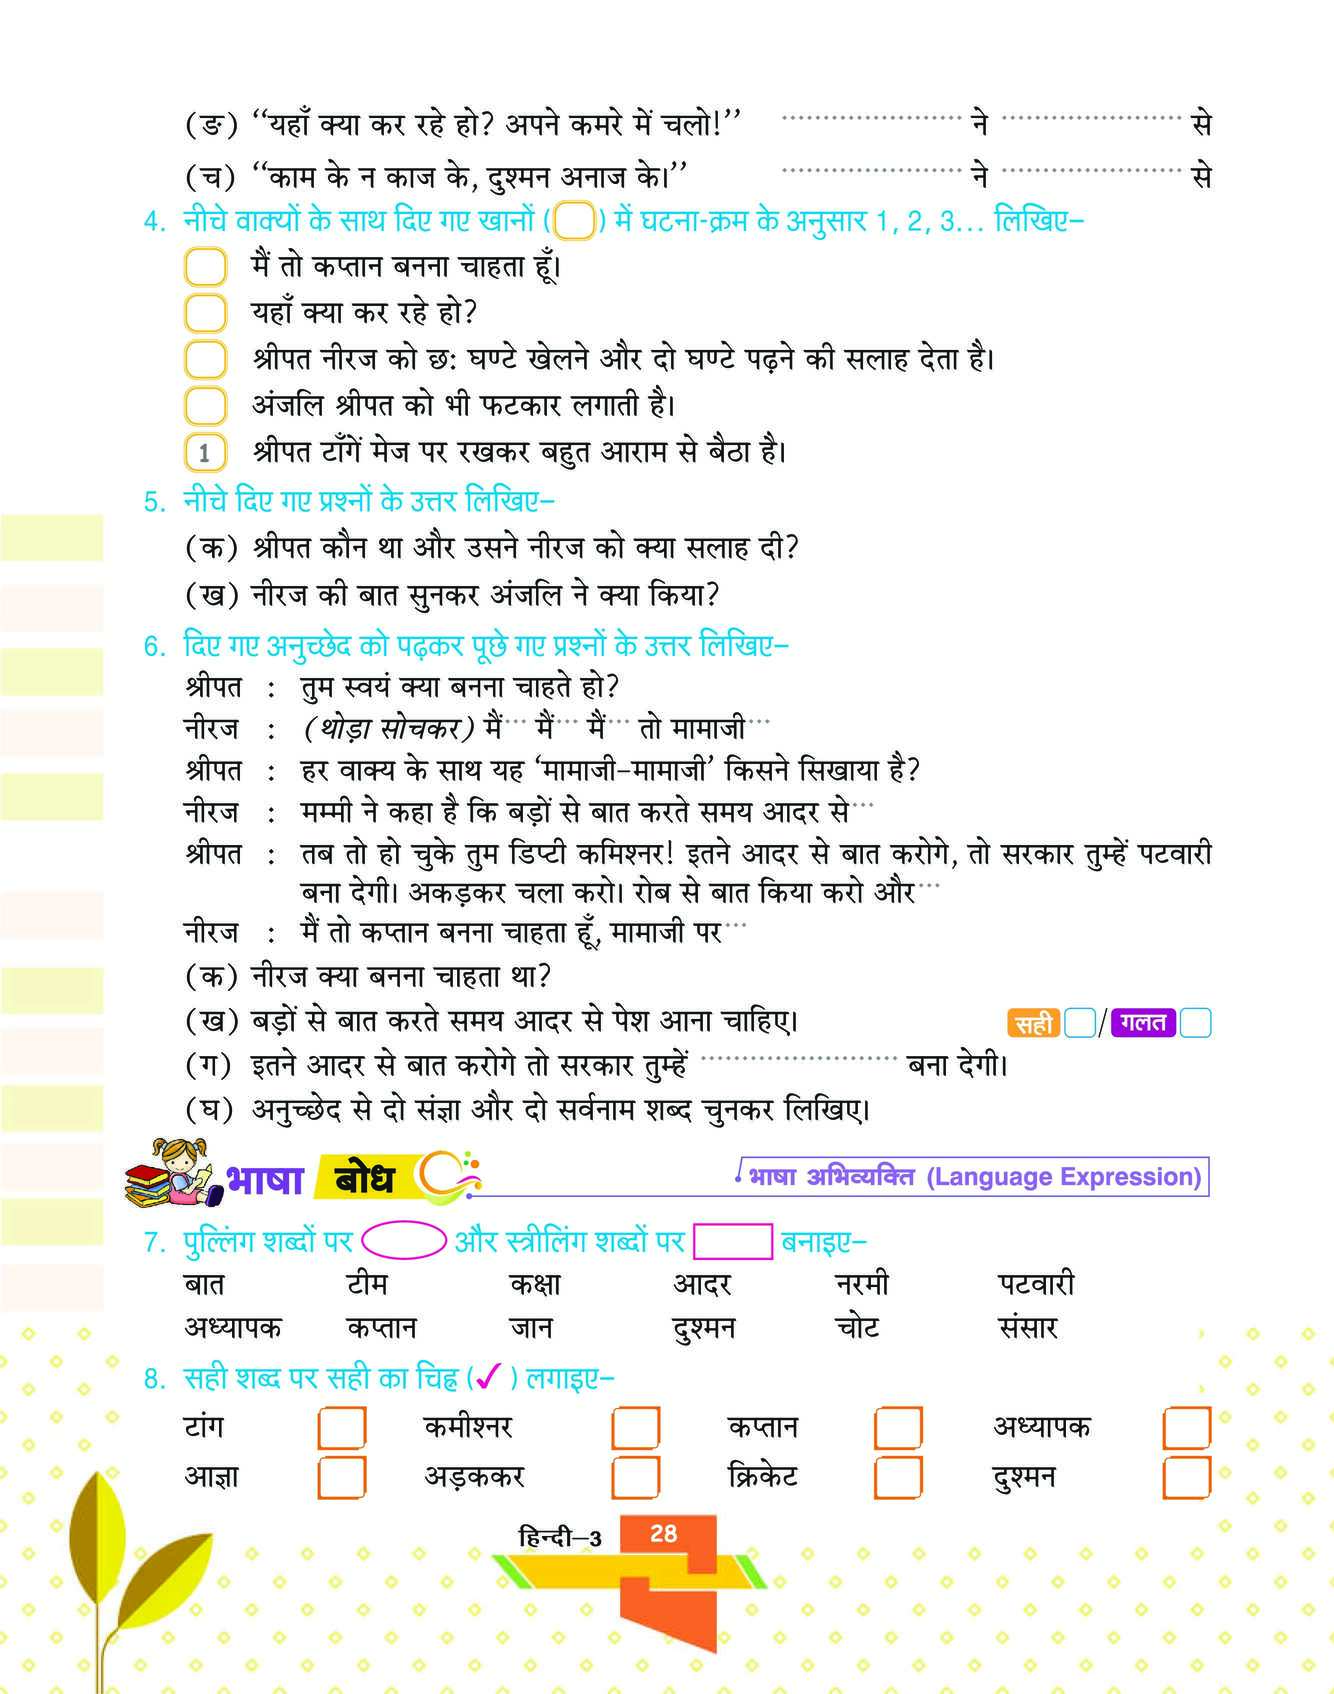 (ङ) “यहाँ क्या कर रहे हो? अपने कमरे में चलो!” ........................ ने ........................ से
(च) “काम के न काज के, दुश्मन अनाज के।” ........................ ने ........................ से
4. नीचे वाक्यों के साथ दिए गए खानों ( ) में घटना-क्रम के अनुसार 1, 2, 3... लिखिए–
मैं तो कप्तान बनना चाहता हूँ।
यहाँ क्या कर रहे हो?
श्रीपत नीरज को छः घण्टे खेलने और दो घण्टे पढ़ने की सलाह देता है।
अंजलि श्रीपत को भी फटकार लगाती है।
1 श्रीपत टाँगें मेज पर रखकर बहुत आराम से बैठा है।
5. नीचे दिए गए प्रश्नों के उत्तर लिखिए–
(क) श्रीपत कौन था और उसने नीरज को क्या सलाह दी?
(ख) नीरज की बात सुनकर अंजलि ने क्या किया?
6. दिए गए अनुच्छेद को पढ़कर पूछे गए प्रश्नों के उत्तर लिखिए–
श्रीपत : तुम स्वयं क्या बनना चाहते हो?
नीरज : (थोड़ा सोचकर) मैं... मैं... मैं... तो मामाजी...
श्रीपत : हर वाक्य के साथ यह ‘मामाजी–मामाजी’ किसने सिखाया है?
नीरज : मम्मी ने कहा है कि बड़ों से बात करते समय आदर से...
श्रीपत : तब तो हो चुके तुम डिप्टी कमिश्नर! इतने आदर से बात करोगे, तो सरकार तुम्हें पटवारी
बना देगी। अकड़कर चला करो। रोब से बात किया करो और...
नीरज : मैं तो कप्तान बनना चाहता हूँ, मामाजी पर...
(क) नीरज क्या बनना चाहता था?
(ख) बड़ों से बात करते समय आदर से पेश आना चाहिए। सही / गलत
(ग) इतने आदर से बात करोगे तो सरकार तुम्हें ........................ बना देगी।
(घ) अनुच्छेद से दो संज्ञा और दो सर्वनाम शब्द चुनकर लिखिए।
भाषा बोध भाषा अभिव्यक्ति (Language Expression)
7. पुल्लिंग शब्दों पर और स्त्रीलिंग शब्दों पर बनाइए–
बात टीम कक्षा आदर नरमी पटवारी
अध्यापक कप्तान जान दुश्मन चोट संसार
8. सही शब्द पर सही का चिह्न (✓) लगाइए–
टांग कमीश्नर कप्तान अध्यापक
आज्ञा अड़ककर क्रिकेट दुश्मन
हिन्दी–3 28